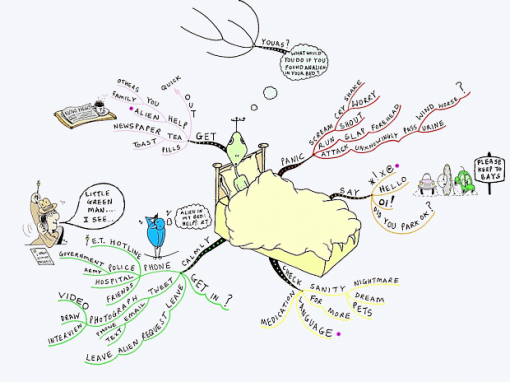 YOURS?
WHAT WOULD
YOU DO IF YOU
FOUND AN ALIEN
IN YOUR BED?
GET
OUT
QUICK
HELP
YOU
ALIEN
OTHERS
FAMILY
TEA
NEWSPAPER
TOAST
PILLS
PANIC
SCREAM
CRY
SHAKE
WORRY
RUN
SHOUT
SLAP FOREHEAD
ATTACK
UNKNOWINGLY
PASS
WIND
WORSE
?
URINE
SAY
*!X@
HELLO
OI!
DID YOU PARK OK?
PLEASE
KEEP TO
BAYS
CHECK
SANITY
NIGHTMARE
DREAM
FOR MORE
PETS
LANGUAGE
MEDICATION
CALMLY
GET IN?
PHONE
E.T. HOTLINE
POLICE
GOVERNMENT
ARMY
HOSPITAL
FRIENDS
TWEET
PHOTOGRAPH
VIDEO
DRAW
INTERVIEW
EMAIL
PHONE
TEXT
LEAVE
REQUEST
ALIEN
LEAVE
ALIEN IN
MY BED!
HELP!
LITTLE
GREEN
MAN....
I SEE...